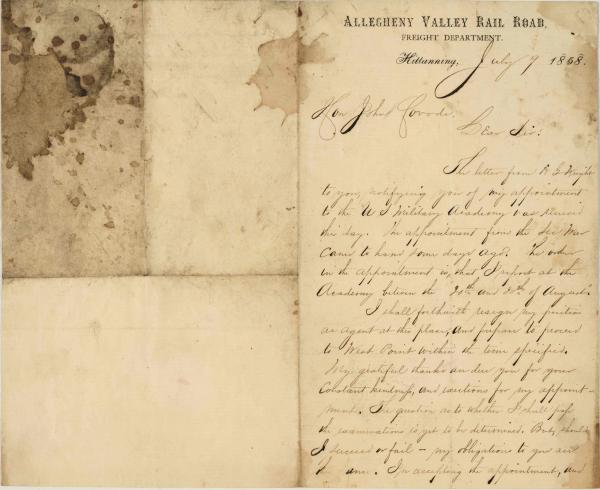 ALLEGHENY VALLEY RAIL ROAD,
FREIGHT DEPARTMENT.
Kittanning, July 9 1868.
Hon John Covode.
Dear Sir:
The letter from R Wright
to you, notifying you of my appointment
to the U S Military Academy was received
this day. An appointment from the Sec War
came to hand some days ago. The order
in the appointment is, that I report at the
Academy between the 20th and of August.
I shall forthwith resign my position
as Agent at this place, and prepare to proceed
to West Point within the term specified.
My grateful thanks are due you for your
constant kindness, and exertions for my appoint-
ment. The question as to whether I shall pass
the examinations is yet to be determined. But, should
I succeed or fail - my obligations to you are
the same. In accepting the appointment, and